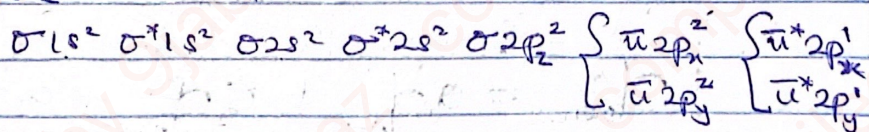 σ1s² σ*1s² σ2s² σ*2s² σ2p_z² { π2p_x² { π*2p_x¹
π2p_y² π*2p_y¹